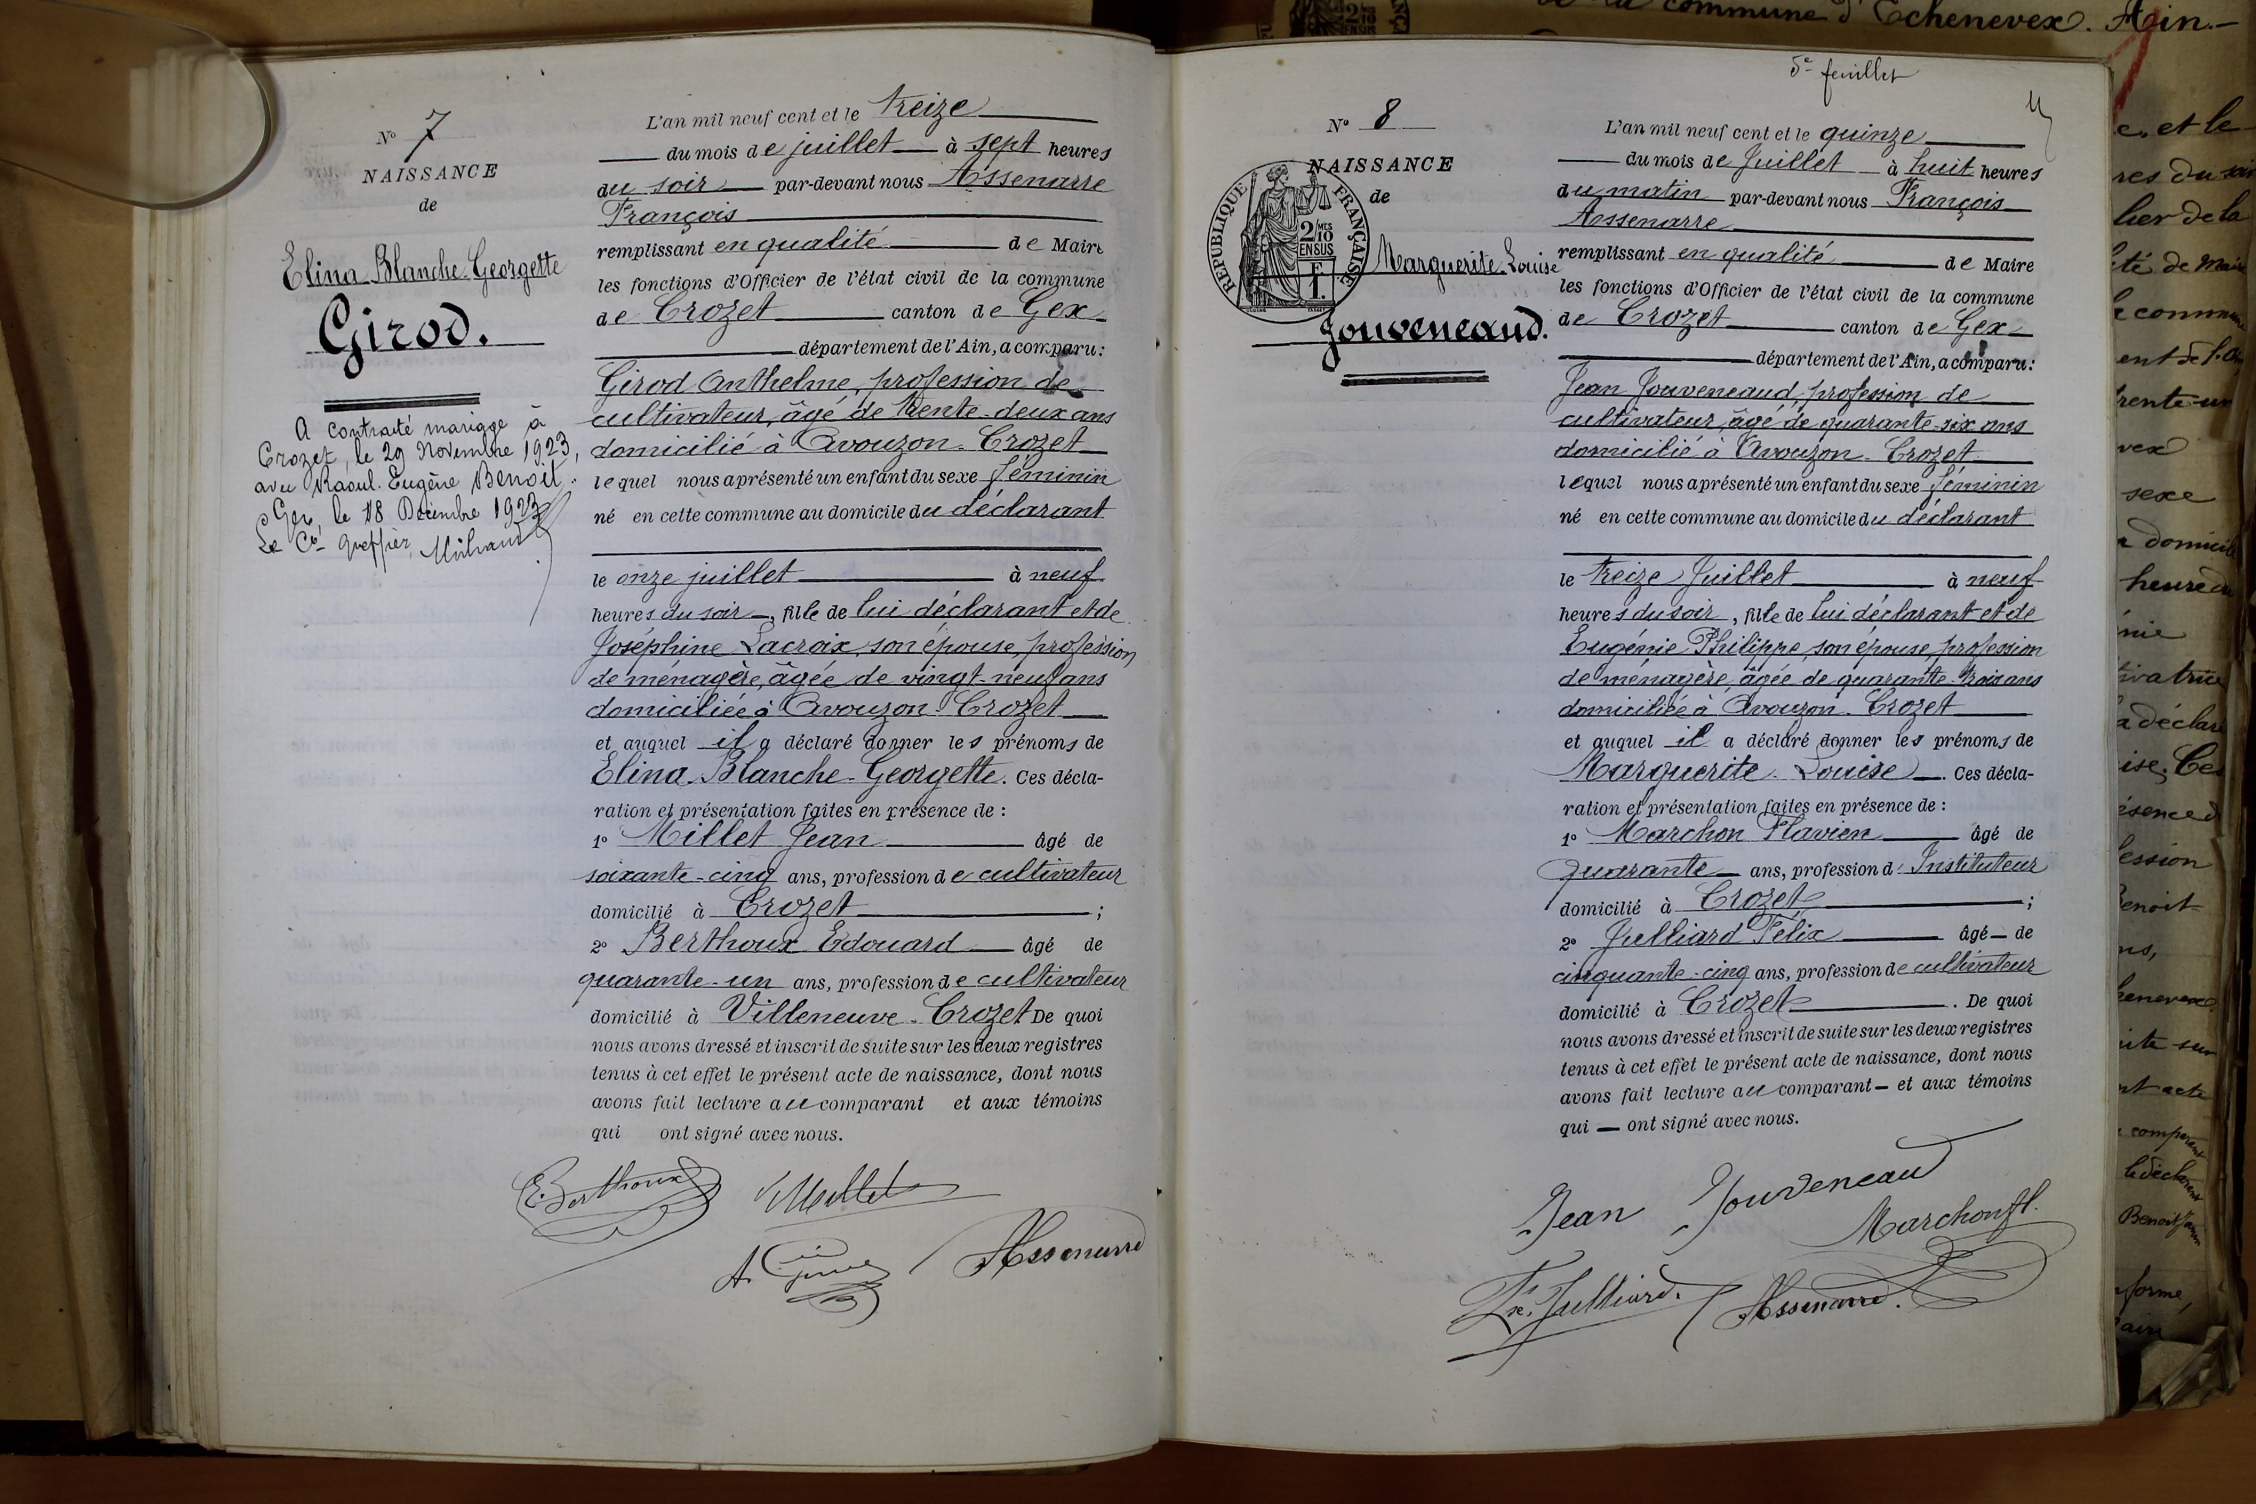 de la commune d'Echenevex. Ain.
Nº 7
NAISSANCE
de
Elina Blanche Georgette
Girod.
A contracté mariage à
Crozet, le 29 Novembre 1923,
avec Raoul Eugène Benoit.
Gex, le 18 Décembre 1923
Le Cis greffier,
L'an mil neuf cent et le treize
du mois de juillet à sept heures
du soir par-devant nous Assenarre
François
remplissant en qualité de Maire
les fonctions d'Officier de l'état civil de la commune
de Crozet canton de Gex
département de l'Ain, a comparu:
Girod Anthelme, profession de
cultivateur, âgé de trente-deux ans
domicilié à Avouzon-Crozet
lequel nous a présenté un enfant du sexe féminin
né en cette commune au domicile du déclarant
le onze juillet à neuf
heures du soir, fille de lui déclarant et de
Joséphine Lacroix, son épouse, profession
de ménagère, âgée de vingt-neuf ans
domiciliée à Avouzon-Crozet
et auquel il a déclaré donner les prénoms de
Elina-Blanche-Georgette. Ces décla-
ration et présentation faites en présence de :
1º Millet Jean âgé de
soixante-cinq ans, profession de cultivateur
domicilié à Crozet ;
2º Berthoux Edouard âgé de
quarante-un ans, profession de cultivateur
domicilié à Villeneuve-Crozet De quoi
nous avons dressé et inscrit de suite sur les deux registres
tenus à cet effet le présent acte de naissance, dont nous
avons fait lecture au comparant et aux témoins
qui ont signé avec nous.
E. Berthoux Millet
A. Girod Assenarre
5e feuillet
Nº 8
NAISSANCE
de
REPUBLIQUE FRANÇAISE
2/10 MES
EN SUS
1 F.
Marguerite Louise
Jouveneaud.
L'an mil neuf cent et le quinze
du mois de Juillet à huit heures
du matin par-devant nous François
Assenarre
remplissant en qualité de Maire
les fonctions d'Officier de l'état civil de la commune
de Crozet canton de Gex
département de l'Ain, a comparu:
Jean Jouveneaud, profession de
cultivateur, âgé de quarante-six ans
domicilié à Avouzon-Crozet
lequel nous a présenté un enfant du sexe féminin
né en cette commune au domicile du déclarant
le treize Juillet à neuf
heures du soir, fille de lui déclarant et de
Eugénie Philippe, son épouse, profession
de ménagère, âgée de quarante-trois ans
domiciliée à Avouzon-Crozet
et auquel il a déclaré donner les prénoms de
Marguerite-Louise. Ces décla-
ration et présentation faites en présence de :
1º Marchon Flavien âgé de
quarante ans, profession d'Instituteur
domicilié à Crozet ;
2º Julliard Félix âgé de
cinquante-cinq ans, profession de cultivateur
domicilié à Crozet. De quoi
nous avons dressé et inscrit de suite sur les deux registres
tenus à cet effet le présent acte de naissance, dont nous
avons fait lecture au comparant et aux témoins
qui ont signé avec nous.
Jean Jouveneaud
Marchon fl.
Fx. Julliard. Assenarre.